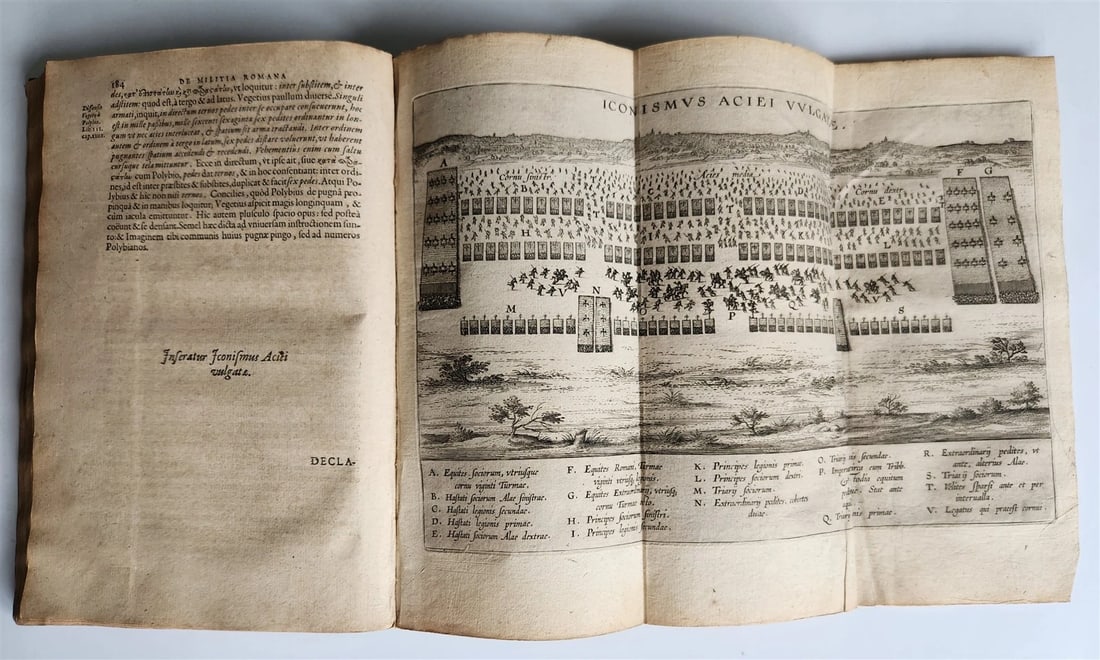 184
DE MILITIA ROMANA
des, ϗτ' ἐπιστάτlω, vt loquitur: inter substitem, & inter
adstitem: quod est, à tergo & ad latus. Vegetius paullum diuerse. Singuli
armati, inquit, in directum ternos pedes inter se occupare consueuerunt, hoc
est in mille passibus, mille sexcenti sexaginta sex pedites ordinantur in lon-
gum vt nec acies interluceat, & spatium sit arma tractandi. Inter ordinem
autem & ordinem à tergo in latum, sex pedes distare voluerunt, vt haberent
pugnantes spatium accedendi & recedendi. Vehementius enim cum saltu
cursuque tela mittuntur. Ecce in directum, vt ipse ait, siue
cum Polybio, pedes dat ternos, & in hoc consentiant: inter ordi-
nes, id est inter præstites & subsites, duplicat & facit sex pedes. Atqui Po-
lybius & hic non nisi ternos. Concilies, quod Polybius de pugna pro-
pinquâ & in manibus loquitur; Vegetius aspicit magis longinquam, &
cùm iacula emittuntur. Hic autem plusculò spacio opus: sed posteà
coëunt & se densant. Semel hæc dicta ad vniuersam instructionem sun-
to: & Imaginem tibi communis huius pugnæ pingo, sed ad numeros
Polybianos.
Inseratur Iconismus Aciei
vulgatæ.
DECLA-
ICONISMVS ACIEI VVLGATÆ.
A
Cornu sinistr.
B
Acies media
D
Cornu dextr.
E
F G
T
T
H
I
K
L
V N
M
O
P
Q
V
S
A. Equites sociorum, vtriusque
cornu viginti Turmae.
B. Hastati sociorum Alae sinistrae.
C. Hastati legionis secundae.
D. Hastati legionis primae.
E. Hastati sociorum Alae dextrae.
F. Equites Romani, Turmae
viginti vtriusq. legionis.
G. Equites Extraordinarij vtriusq.
cornu Turmae octo.
H. Principes sociorum sinistri.
I. Principes legionis secundae.
K. Principes legionis primae.
L. Principes sociorum dextri.
M. Triarij sociorum.
N. Extraordinarij pedites, cohortes
duae.
O. Triarij legionis secundae.
P. Imperatoria cum Tribb.
equitum
Stat ante
Q. Triarij legionis primae.
R. Extraordinarij pedites, vt
ante, alterius Alae.
S. Triarij sociorum.
T. Velites sparsi ante et per
interualla.
V. Legatus qui praeest cornui.